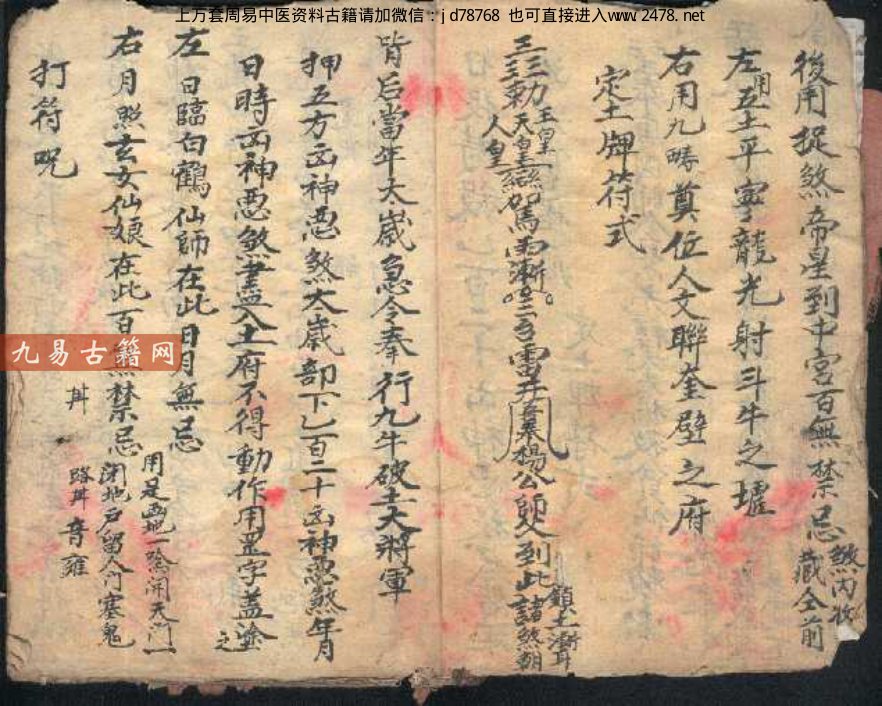 上万套周易中医资料古籍请加微信：jd78768 也可直接进入www.2478.net
後用捉煞帝星到中宮百無禁忌煞內收藏全前
左用五土平寧龍光射斗牛之墟
右用九疇奠位人文聯奎壁之府
定土牌符式
勅玉皇天皇人皇鸞駕雷楊公師父到此諸煞朝
皆后當年太歲急令奉行九牛破土大將軍
押五方凶神惡煞太歲部下乙百二十凶神惡煞年月
日時凶神惡煞盡入土府不得動作用罡字盖塗之
左日臨白鶴仙師在此日月無忌
右月照玄女仙娘在此百無禁忌
用是画地一唸開天門一
閉地戶留人門塞鬼
路丼音雍
丼
打符呪
九易古籍网